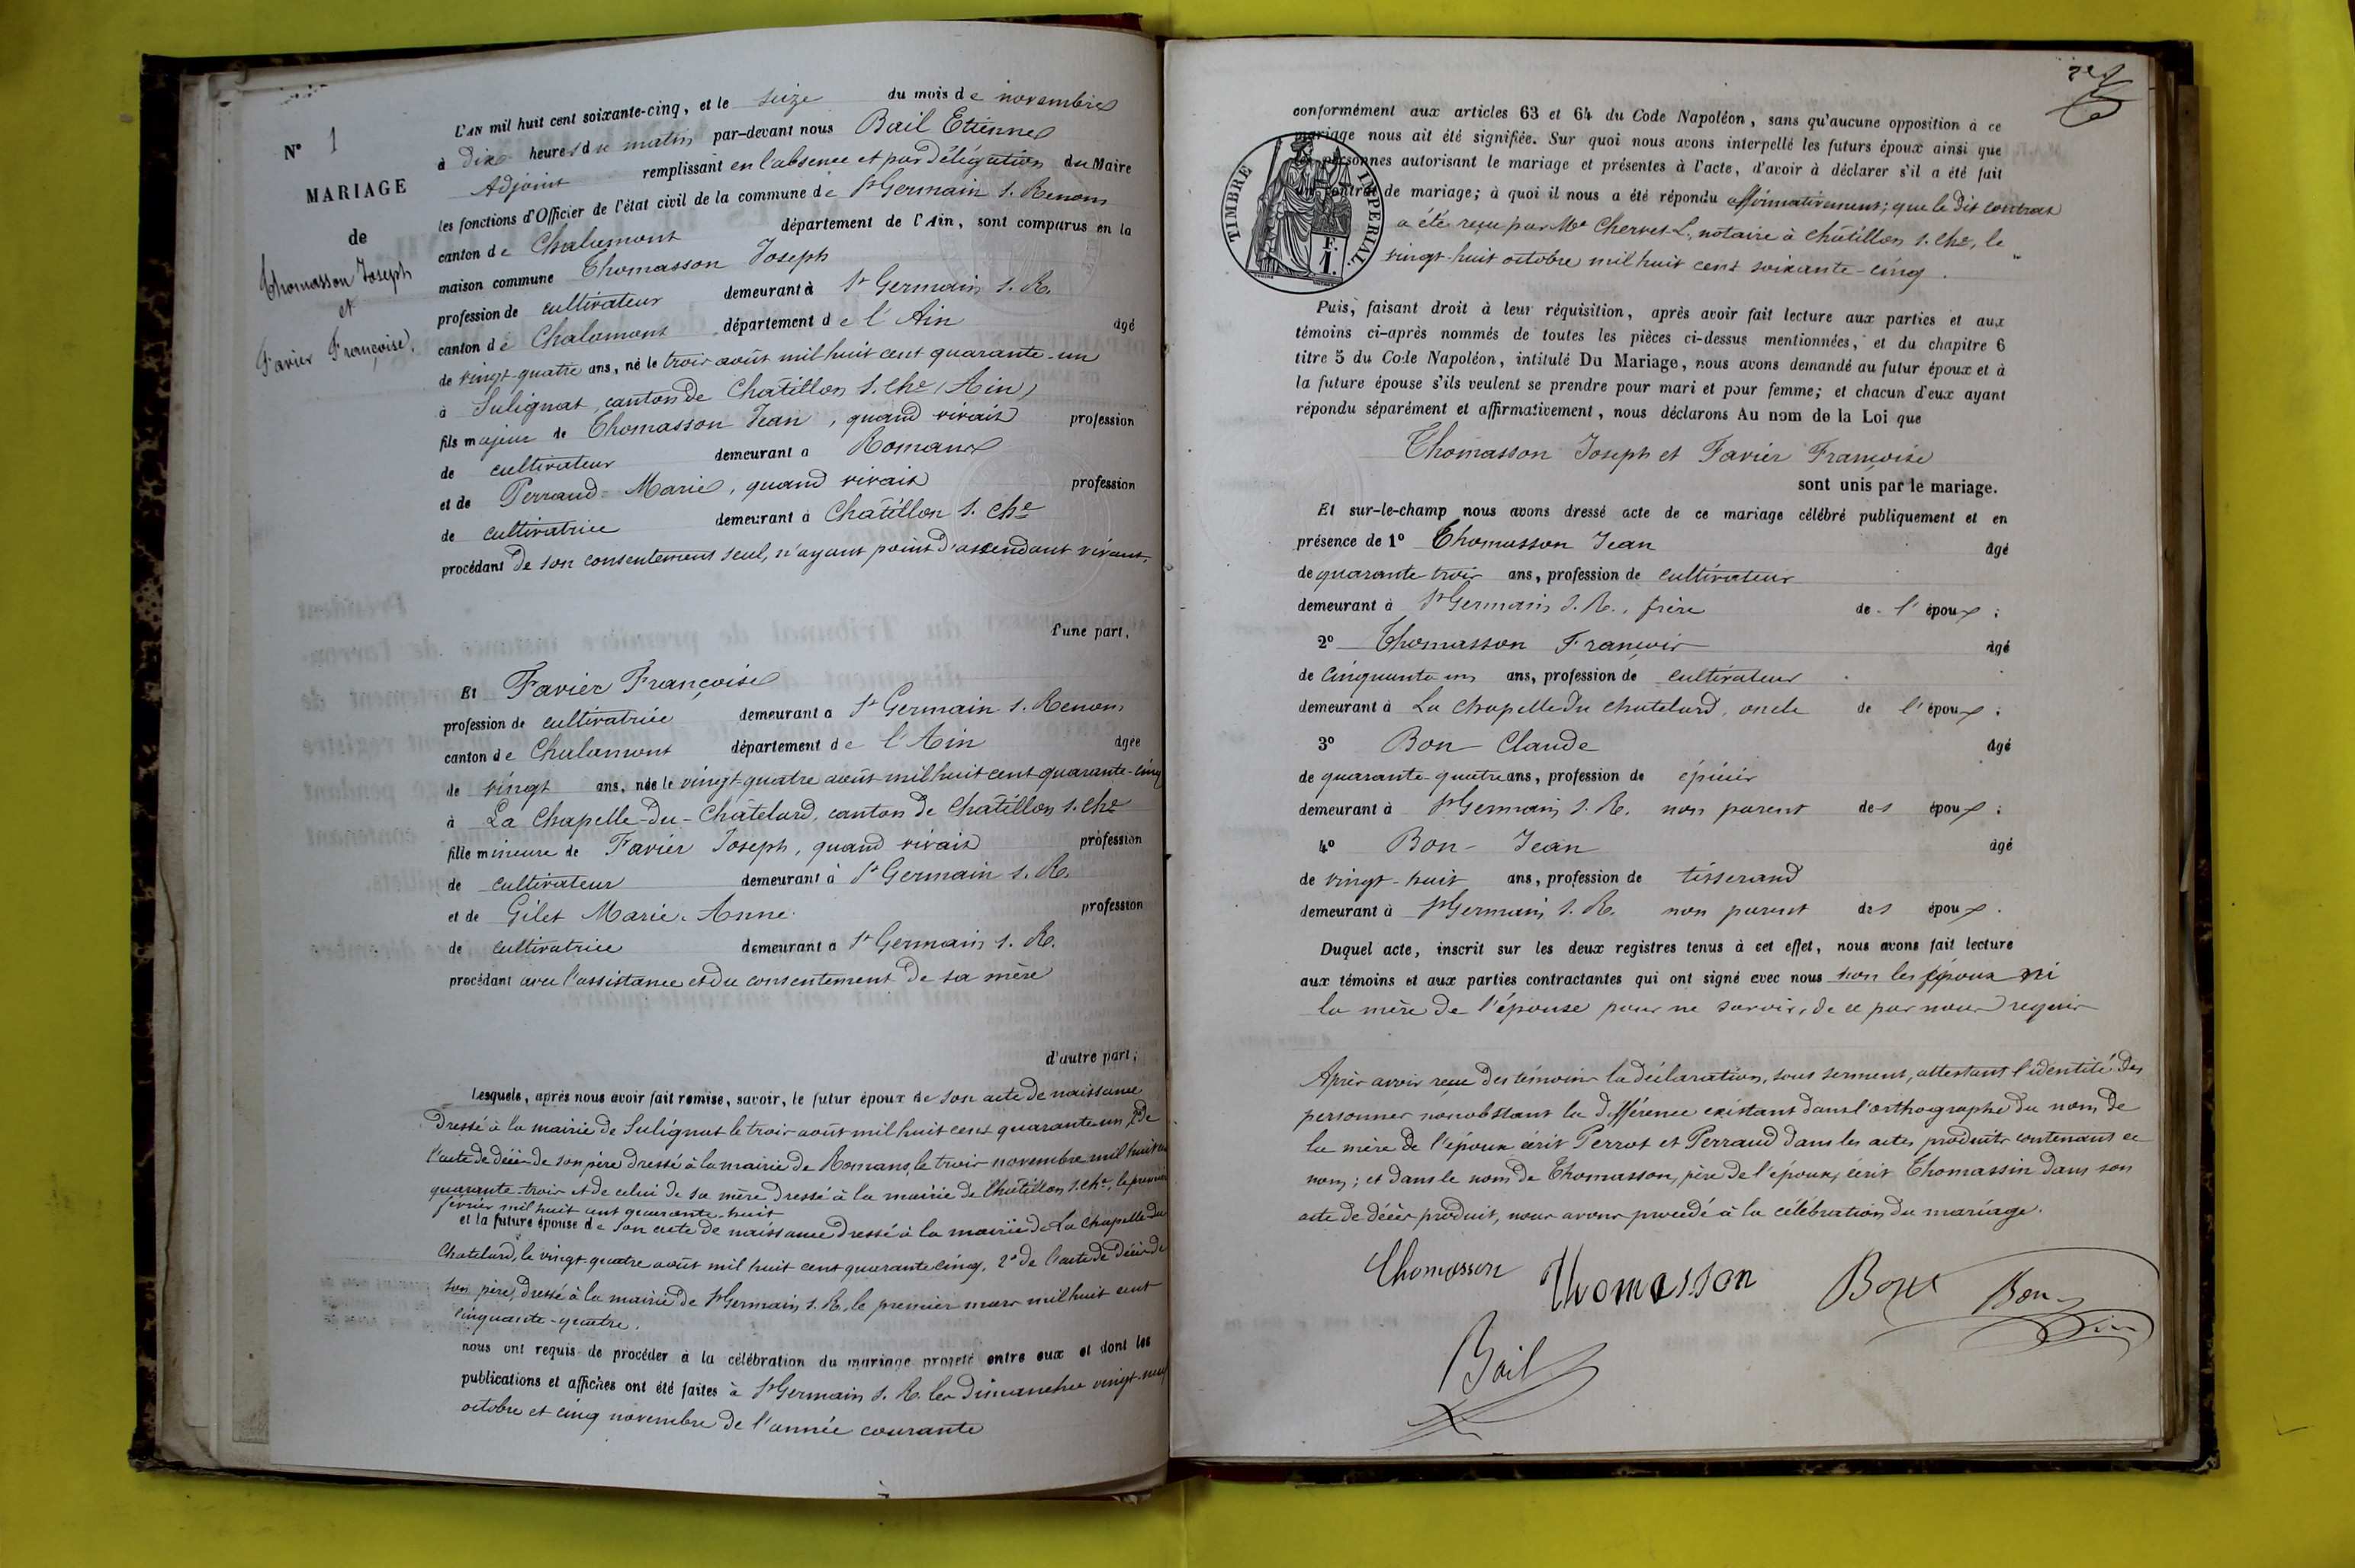 N° 1
MARIAGE
de
Thomasson Joseph
et
Favier Françoise.
L'AN mil huit cent soixante-cinq, et le seize du mois de novembre
à dix heures du matin par-devant nous Bail Etienne
Adjoint remplissant en l'absence et par délégation du Maire
les fonctions d'Officier de l'état civil de la commune de St Germain s. Renom
canton de Chalamont département de l'Ain, sont comparus en la
maison commune Thomasson Joseph
profession de cultivateur demeurant à St Germain s. R.
canton de Chalamont département de l'Ain âgé
de vingt-quatre ans, né le trois août mil huit cent quarante-un
à Sulignat, canton de Chatillon s. Che (Ain)
fils majeur de Thomasson Jean, quand vivait profession
de cultivateur demeurant a Romans
et de Perraud Marie, quand vivait profession
de cultivatrice demeurant à Châtillon s. Che
procédant de son consentement seul, n'ayant point d'ascendant vivant,
d'une part,
Et Favier Françoise
profession de cultivatrice demeurant a St Germain s. Renom
canton de Chalamont département de l'Ain âgée
de vingt ans, née le vingt-quatre août mil huit cent quarante-cinq
à La Chapelle-du-Châtelard, canton de Châtillon s. Che
fille mineure de Favier Joseph, quand vivait profession
de cultivateur demeurant à St Germain s. R.
et de Gilet Marie-Anne profession
de cultivatrice demeurant a St Germain s. R.
procédant avec l'assistance et du consentement de sa mère
d'autre part;
Lesquels, après nous avoir fait remise, savoir, le futur époux de son acte de naissance
dressé à la mairie de Sulignat le trois août mil huit cent quarante-un, 2° de
l'acte de décès de son père dressé à la mairie de Romans, le trois novembre mil huit cent
quarante-trois et de celui de sa mère dressé à la mairie de Châtillon s. Che, le premier
février mil huit cent quarante-huit
et la future épouse de son acte de naissance dressé à la mairie de La Chapelle du
Chatelard, le vingt-quatre août mil huit cent quarante cinq, 2° de l'acte de décès de
son père, dressé à la mairie de St Germain s. R. le premier mars mil huit cent
cinquante-quatre.
nous ont requis de procéder à la célébration du mariage projeté entre eux et dont les
publications et affiches ont été faites à St Germain s. R. les dimanches vingt-neuf
octobre et cinq novembre de l'année courante
conformément aux articles 63 et 64 du Code Napoléon, sans qu'aucune opposition à ce
mariage nous ait été signifiée. Sur quoi nous avons interpellé les futurs époux ainsi que
les personnes autorisant le mariage et présentes à l'acte, d'avoir à déclarer s'il a été fait
un contrat de mariage; à quoi il nous a été répondu affirmativement; que le dit contrat
a été reçu par Me Chervet L., notaire à Châtillon s. Che, le
vingt-huit octobre mil huit cent soixante-cinq.
TIMBRE IMPERIAL.
1 F.
Puis, faisant droit à leur réquisition, après avoir fait lecture aux parties et aux
témoins ci-après nommés de toutes les pièces ci-dessus mentionnées, et du chapitre 6
titre 5 du Code Napoléon, intitulé Du Mariage, nous avons demandé au futur époux et à
la future épouse s'ils veulent se prendre pour mari et pour femme; et chacun d'eux ayant
répondu séparément et affirmativement, nous déclarons Au nom de la Loi que
Thomasson Joseph et Favier Françoise
sont unis par le mariage.
Et sur-le-champ nous avons dressé acte de ce mariage célébré publiquement et en
présence de 1° Thomasson Jean âgé
de quarante trois ans, profession de cultivateur
demeurant à St Germain s. R., frère de l'époux;
2° Thomasson François âgé
de cinquante un ans, profession de cultivateur
demeurant à La Chapelle du Chatelard, oncle de l'époux;
3° Bon Claude âgé
de quarante-quatre ans, profession de épicier
demeurant à St Germain s. R. non parent des époux;
4° Bon Jean âgé
de vingt-huit ans, profession de tisserand
demeurant à St Germain s. R. non parent des époux.
Duquel acte, inscrit sur les deux registres tenus à cet effet, nous avons fait lecture
aux témoins et aux parties contractantes qui ont signé avec nous non les époux ni
la mère de l'épouse pour ne savoir, de ce par nous requis
Après avoir reçu des témoins la déclaration, sous serment, attestant l'identité des
personnes nonobstant la différence existant dans l'orthographe du nom de
la mère de l'époux écrit Perrot et Perraud dans les actes produits contenant ce
nom; et dans le nom de Thomasson, père de l'époux, écrit Thomassin dans son
acte de décès produit, nous avons procédé à la célébration du mariage.
Thomasson Thomasson Bon Bon
Bail